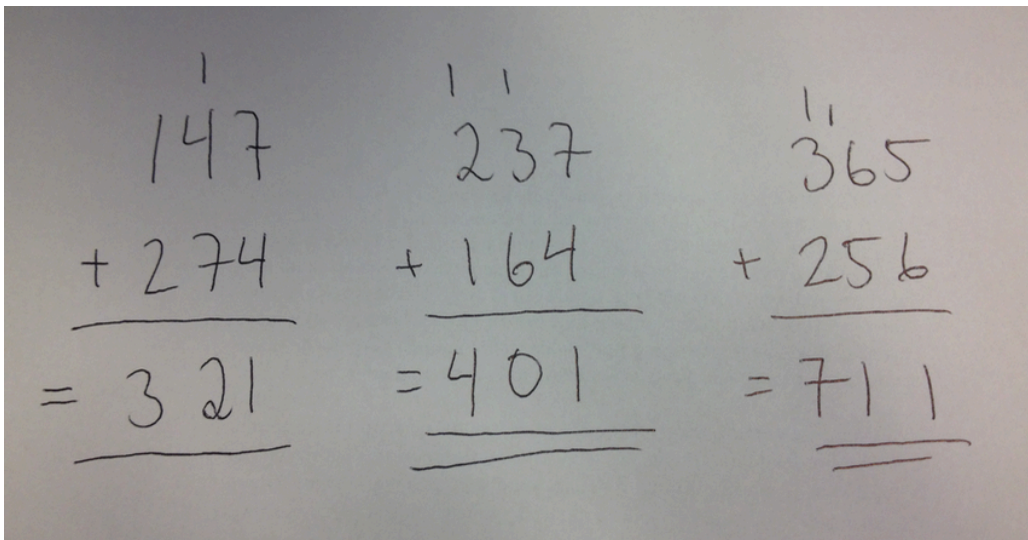 1
147
+ 274
= 321
1 1
237
+ 164
= 401
1 1
365
+ 256
= 711